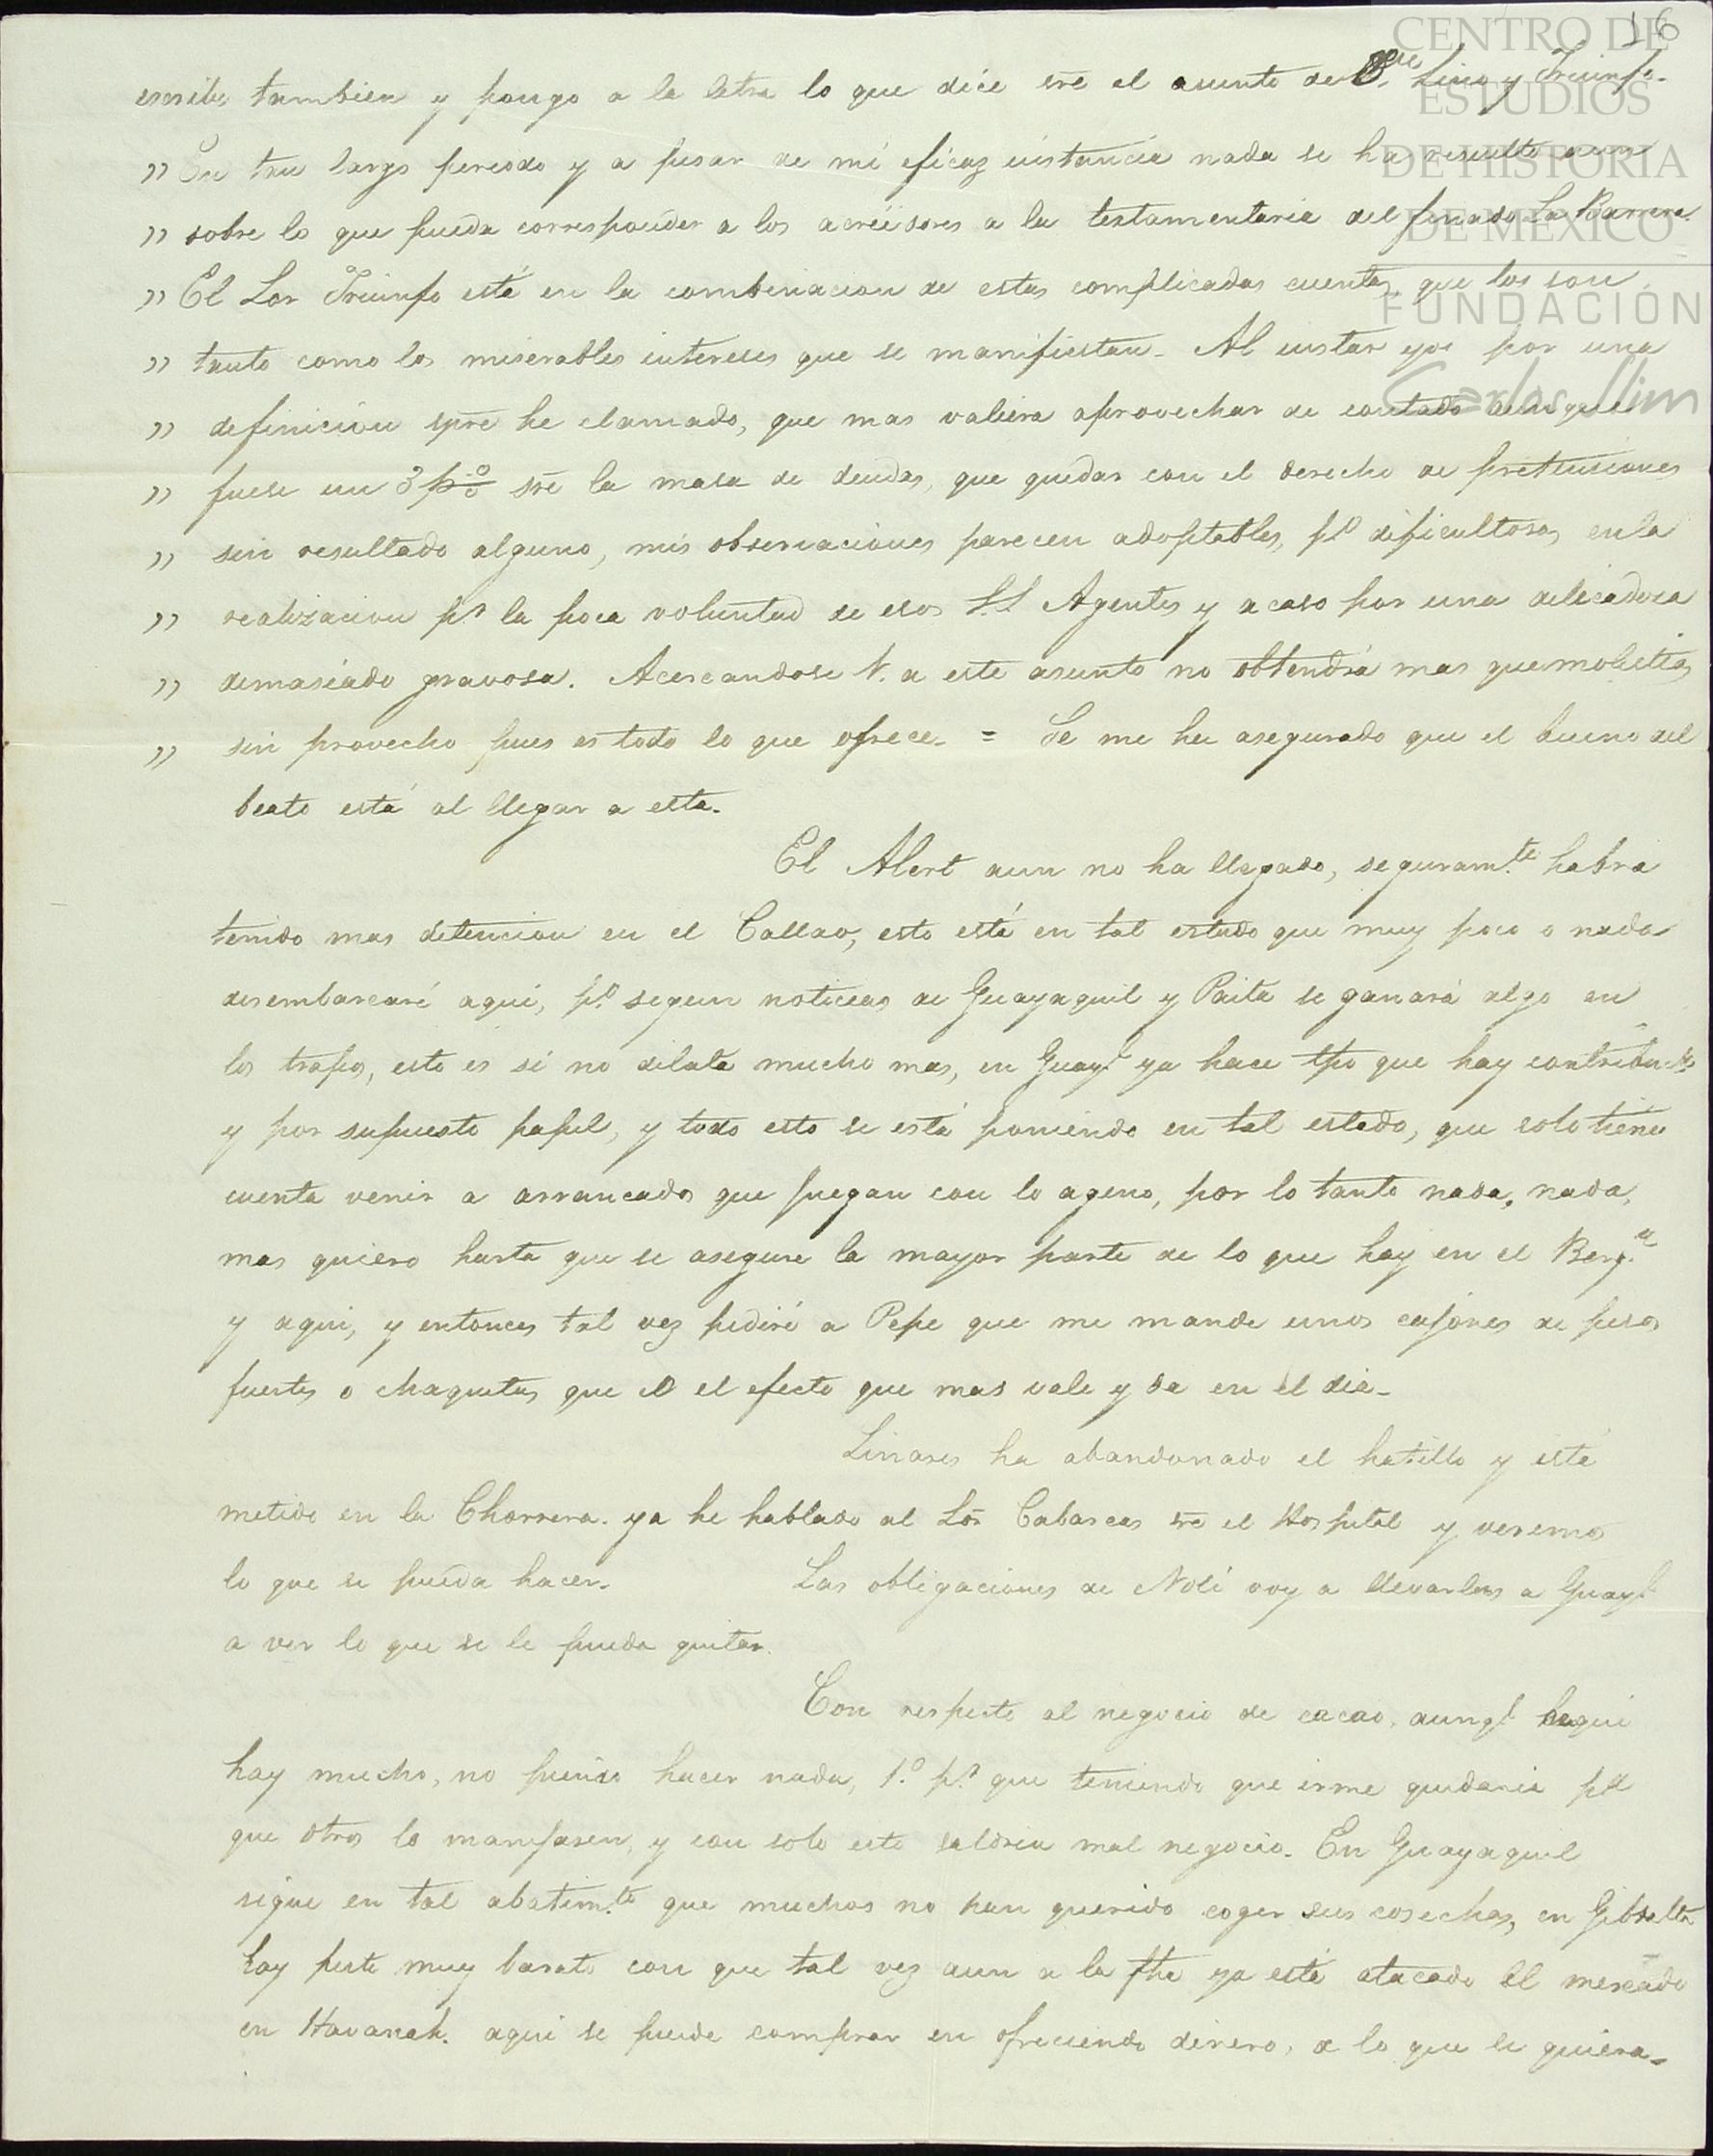 16
CENTRO DE
ESTUDIOS
DE HISTORIA
DE MEXICO
FUNDACIÓN
Carlos Slim
escribe tambien y pongo a la letra lo que dice sre el asunto de Lino y Triunfo.
" En tan largo periodo y a pesar de mi eficaz instancia nada se ha resuelto aun
" sobre lo que pueda corresponder a los acreedores a la testamentaria del finado La Barrera
" El Sor Triunfo está en la combinacion de estas complicadas cuentas, que los son
" tanto como los miserables intereses que se manifiestan. Al instar yo por una
" definicion spre he clamado, que mas valiera aprovechar de contado aunque
" fuese un 3 p% sre la masa de deudas, que quedar con el derecho de pretensiones
" sin resultado alguno, mis observaciones parecen adoptables, po dificultosas en la
" realizacion pr la poca voluntad de esos S.S Agentes y acaso por una delicadeza
" demasiado gravosa. Acercandose V. a este asunto no obtendrá mas que molestias
" sin provecho pues es todo lo que ofrece. = Se me ha asegurado que el bueno del
beato está al llegar a esta.
El Alert aun no ha llegado, seguram.te habra
tenido mas detencion en el Callao, esto está en tal estado que muy poco o nada
desembarcaré aqui, p.o segun noticias de Guayaquil y Paita se ganará algo en
los trapos, esto es si no dilata mucho mas, en Guay.l ya hace tpo que hay
y por supuesto papel, y todo esto se está poniendo en tal estado, que solo tiene
cuenta venir a arrancados que juegan con lo ageno, por lo tanto nada, nada,
mas quiero hasta que se asegure la mayor parte de lo que hay en el Berg.n
y aqui, y entonces tal vez pediré a Pepe que me mande unos cajones de pesos
fuertes o chaquetas que es el efecto que mas vale y da en el dia.
Linares ha abandonado el hatillo y está
metido en la Chorrera. ya he hablado al Sor Cabarcas sre el Hospital y veremos
lo que se pueda hacer. Las obligaciones de Noli voy a llevarlas a Guay.l
a ver lo que se le pueda quitar.
Con respecto al negocio de cacao, aunq.e aqui
hay mucho, no pienso hacer nada, 1.o p.r que teniendo que irme quedaria pa
que otros lo manejasen, y con solo esto saldria mal negocio. En Guayaquil
sigue en tal abatim.to que muchos no han querido coger sus cosechas, en Gibralta
hay peste muy barato con que tal vez aun a la fha ya está atacado el mercado
en Havanah. aqui se puede comprar en ofreciendo dinero, a lo que se quiera.